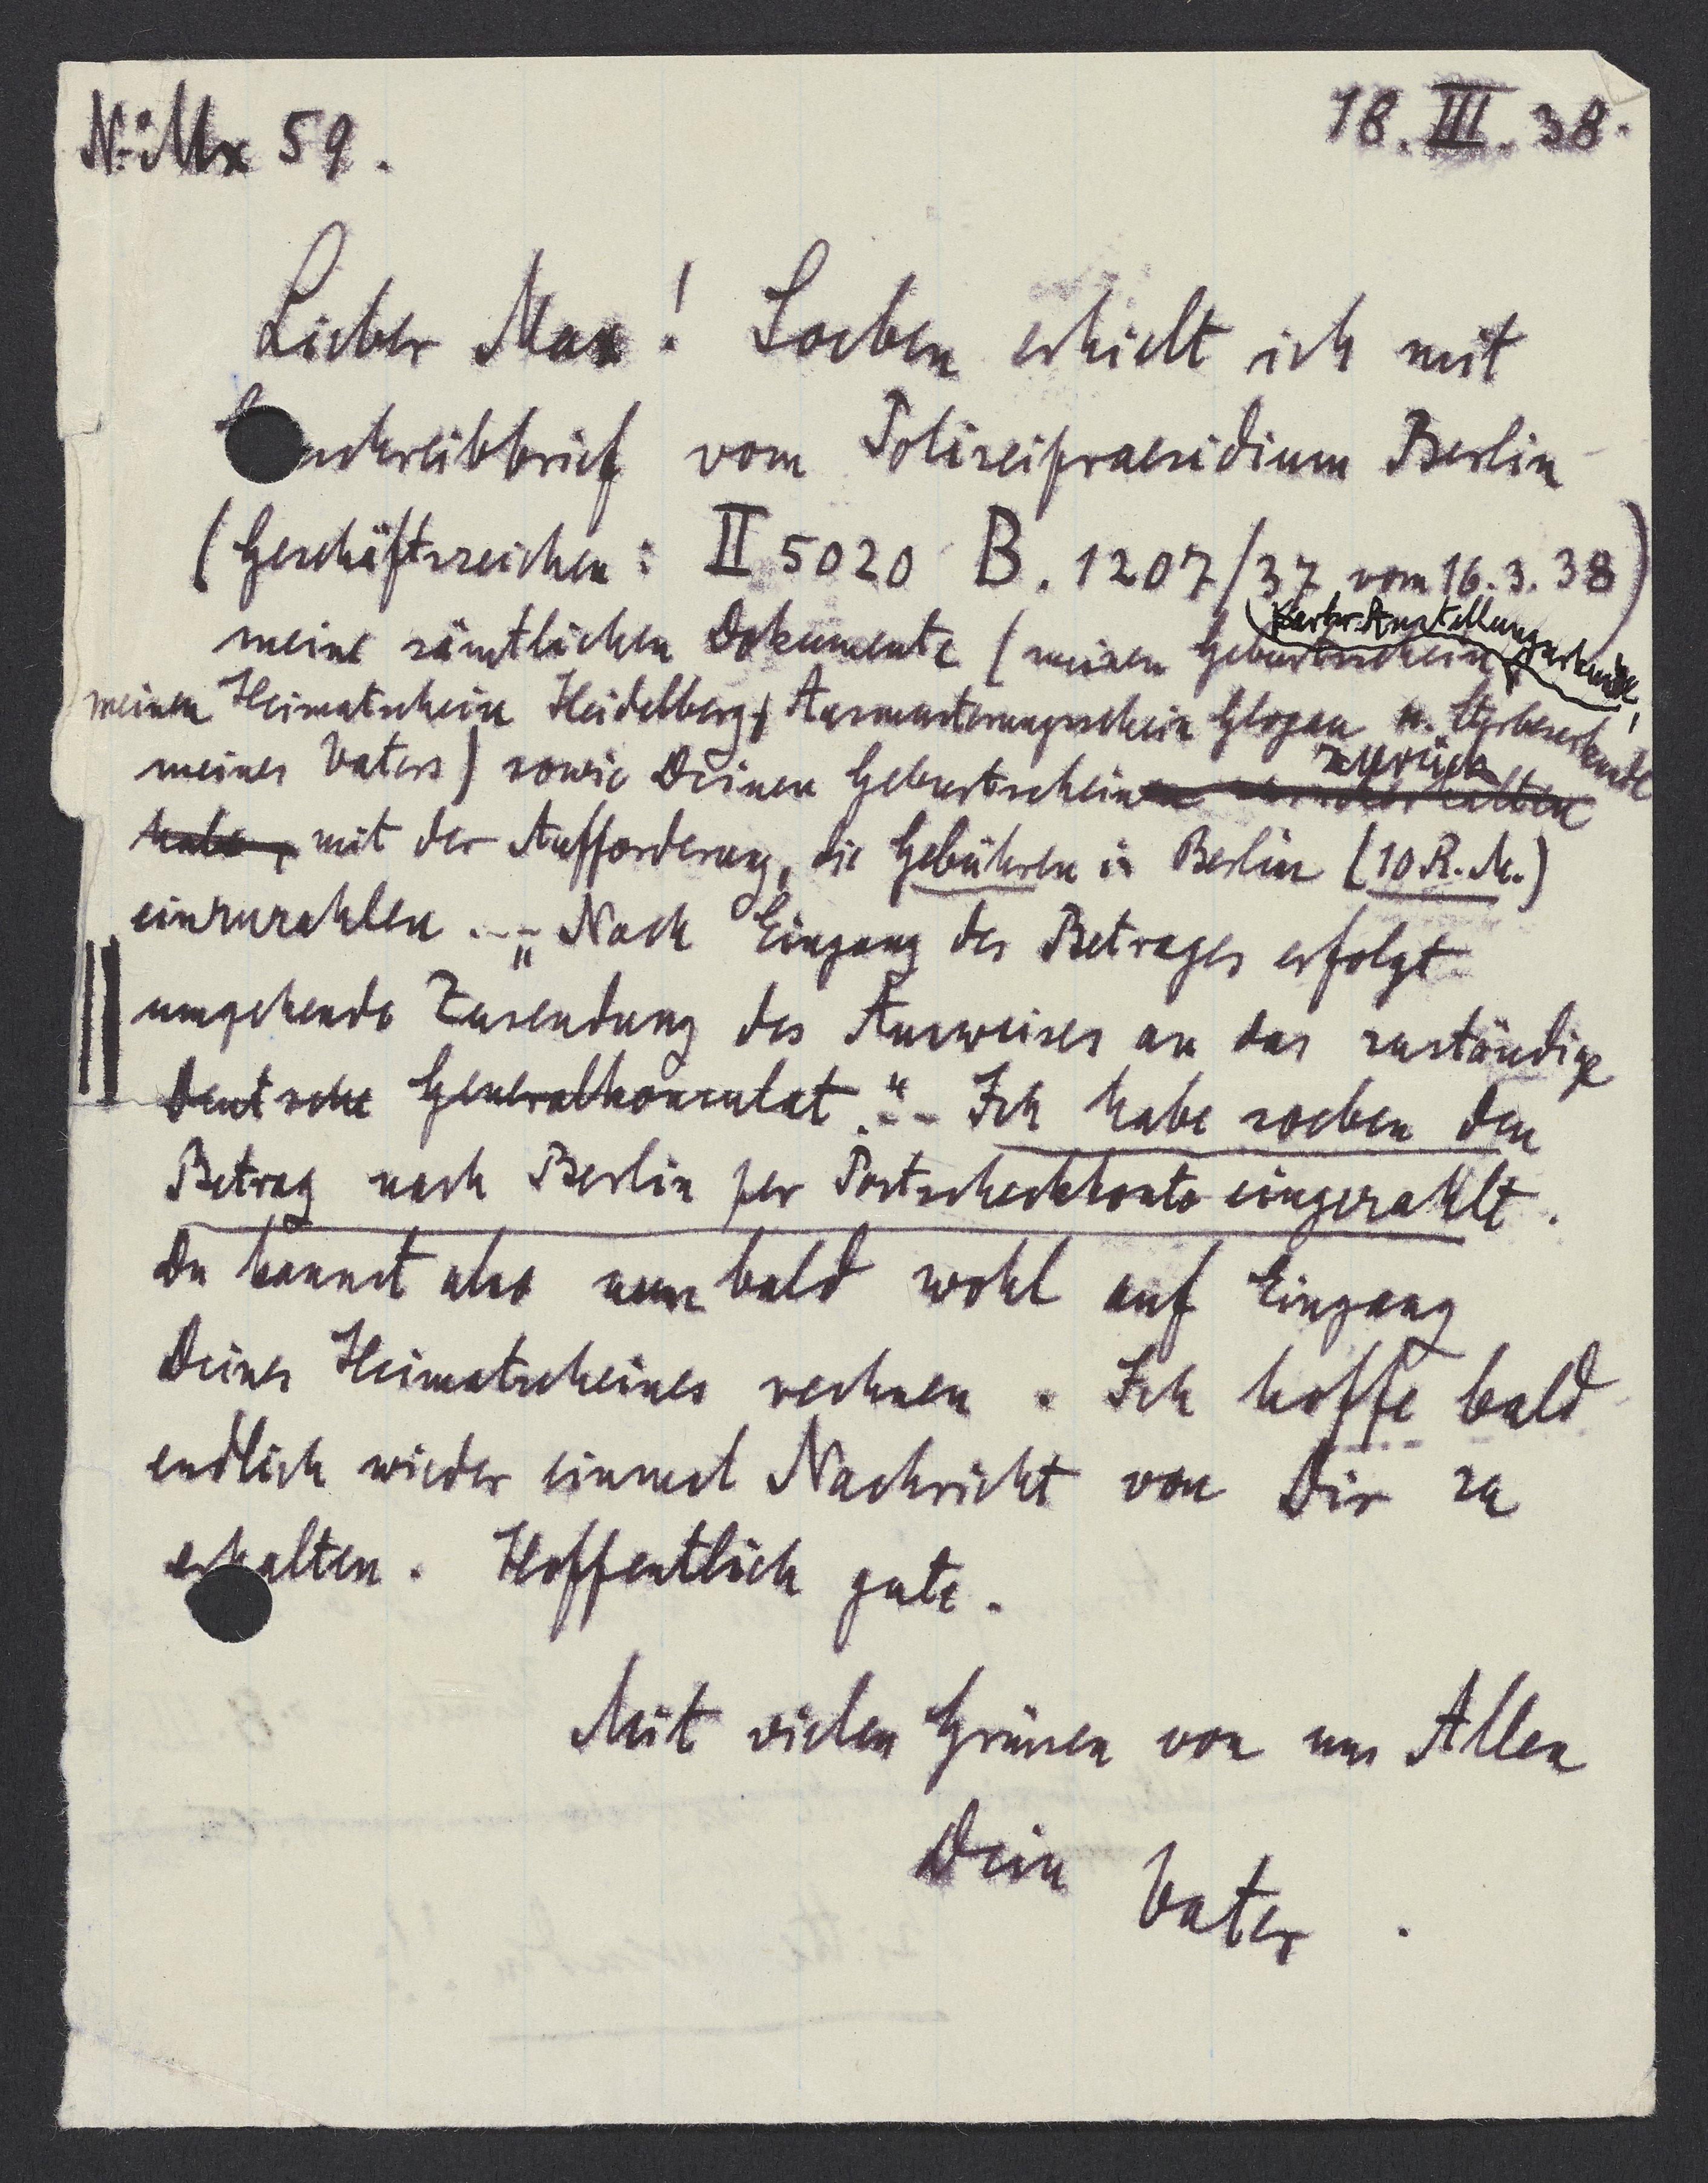 No: Mx 59.
18.III.38.
Lieber Max! Soeben erhielt ich mit
Einschreibbrief vom Polizeipraesidium Berlin
(Geschäftszeichen: II 5020 B. 1207/37 vom 16.3.38)
Anstellungsurkunde,
meine sämtlichen Dokumente (meinen Geburtsschein,
meinen Heimatschein Heidelberg, Ausmusterungsschein Glogau u. Sterbeurkunde
zurück
meines Vaters) sowie Deinen Geburtschein
habe, mit der Aufforderung, die Gebühren in Berlin (10 R.M.)
einzuzahlen. - „Nach Eingang des Betrages erfolgt
umgehende Zusendung des Ausweises an das zuständige
Deutsche Generalkonsulat." - Ich habe soeben den
Betrag nach Berlin per Postscheckkonto eingezahlt.
Du kannst also nun bald wohl auf Eingang
Deines Heimatscheines rechnen. Ich hoffe bald
endlich wieder einmal Nachricht von Dir zu
erhalten. Hoffentlich gute.
Mit vielen Grüssen von uns Allen
Dein Vater.